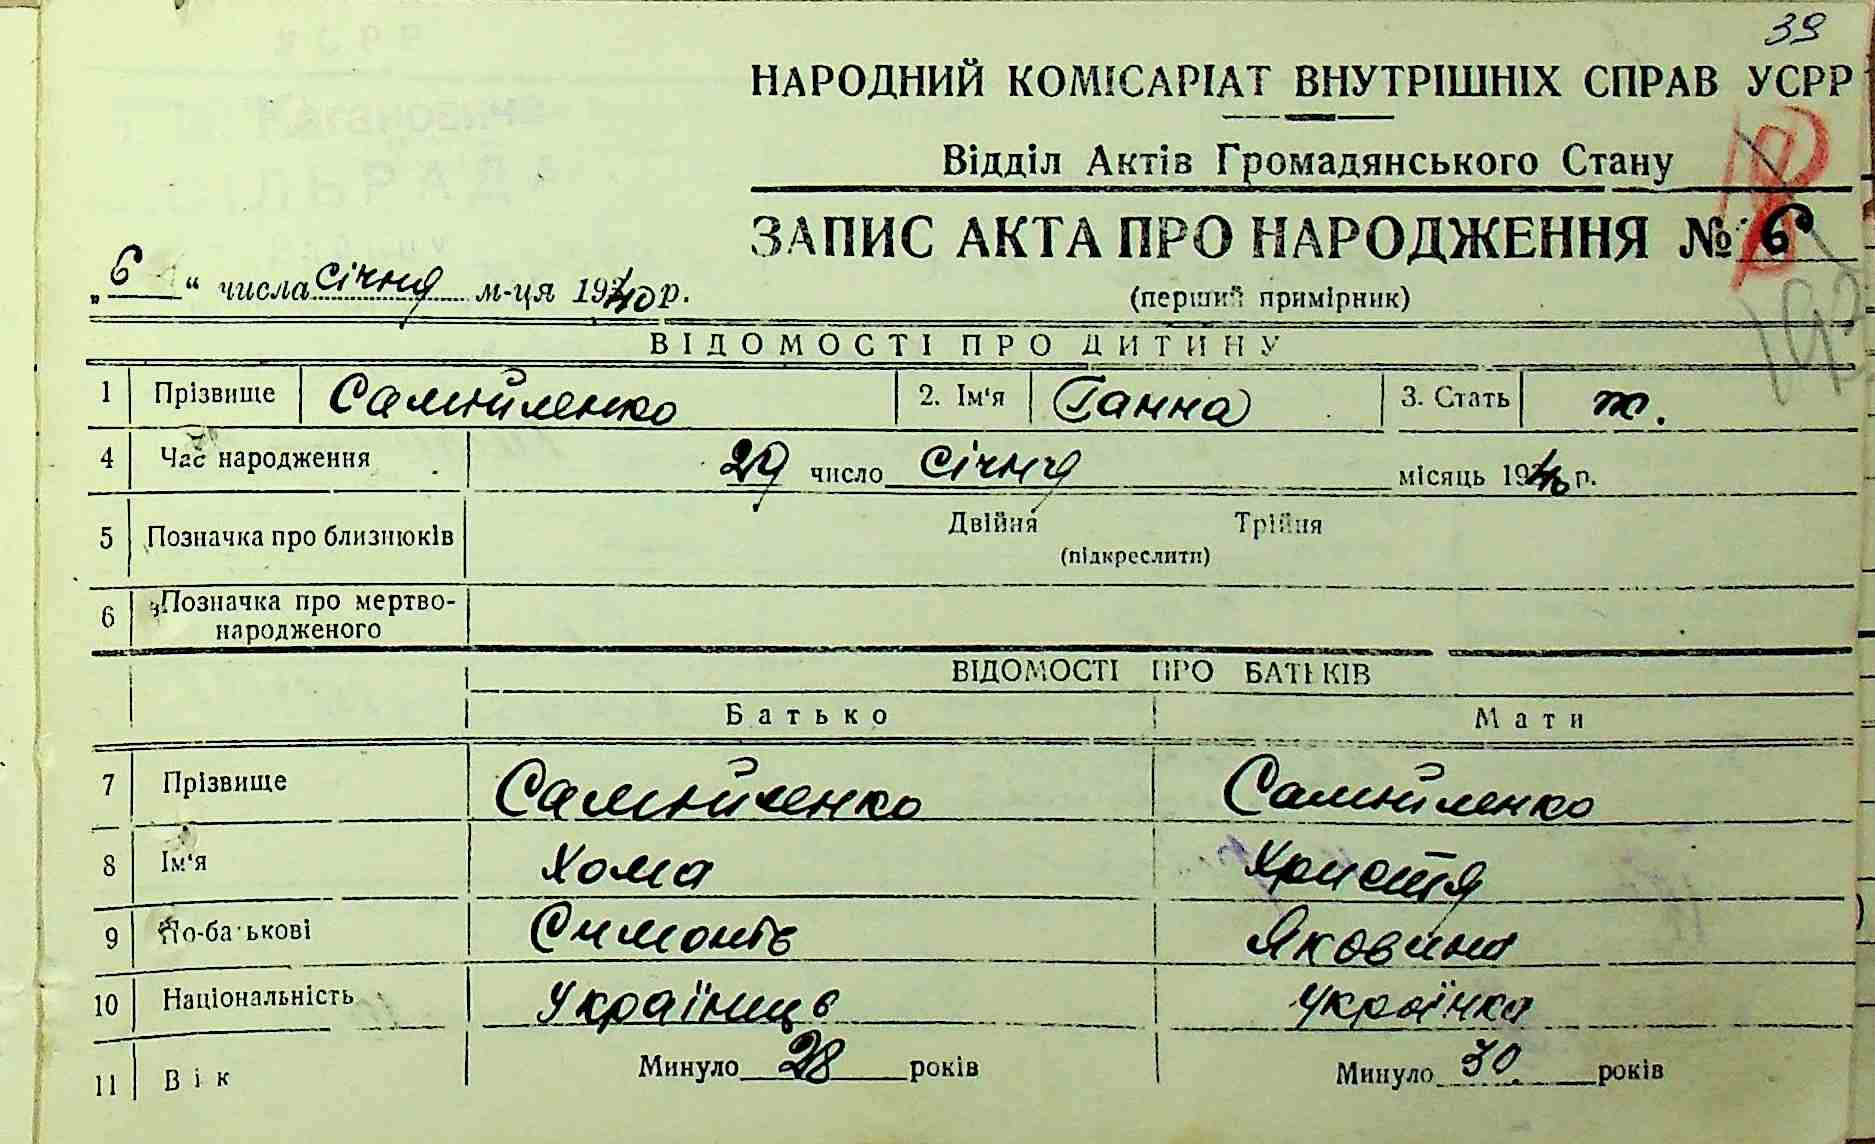 39
НАРОДНИЙ КОМІСАРІАТ ВНУТРІШНІХ СПРАВ УСРР
Відділ Актів Громадянського Стану
ЗАПИС АКТА ПРО НАРОДЖЕННЯ № 6
„6“ числа січня м-ця 1940 р.
(перший примірник)
ВІДОМОСТІ ПРО ДИТИНУ
1 Прізвище Самійленко 2. Ім'я Ганна 3. Стать ж.
4 Час народження 29 число січня місяць 1940 р.
5 Позначка про близнюків Двійня Трійня
(підкреслити)
6 Позначка про мертво-
народженого
ВІДОМОСТІ ПРО БАТЬКІВ
Батько Мати
7 Прізвище Самійленко Самійленко
8 Ім'я Хома Христя
9 По-батькові Симонів Яковина
10 Національність Українець українка
11 Вік Минуло 28 років Минуло 30 років